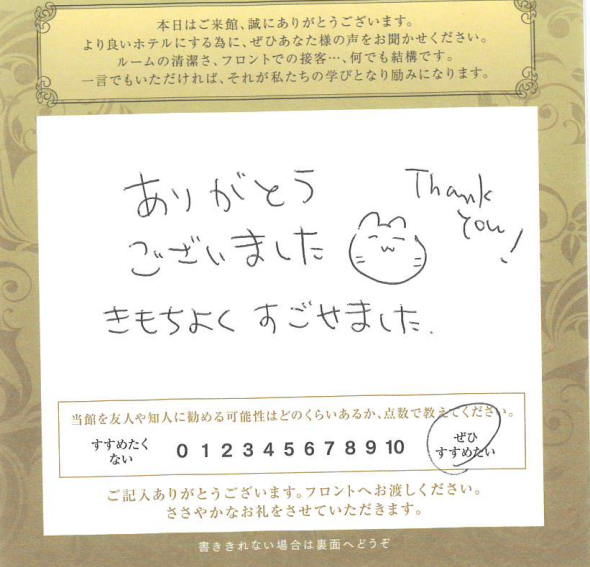 本日はご来館、誠にありがとうございます。
より良いホテルにする為に、ぜひあなた様の声をお聞かせください。
ルームの清潔さ、フロントでの接客…、何でも結構です。
一言でもいただければ、それが私たちの学びとなり励みになります。
ありがとう
ございました
Thank
you!
きもちよく すごせました.
当館を友人や知人に勧める可能性はどのくらいあるか、点数で教えてください。
すすめたく
ない
0 1 2 3 4 5 6 7 8 9 10
ぜひ
すすめたい
ご記入ありがとうございます。フロントへお渡しください。
ささやかなお礼をさせていただきます。
書ききれない場合は裏面へどうぞ